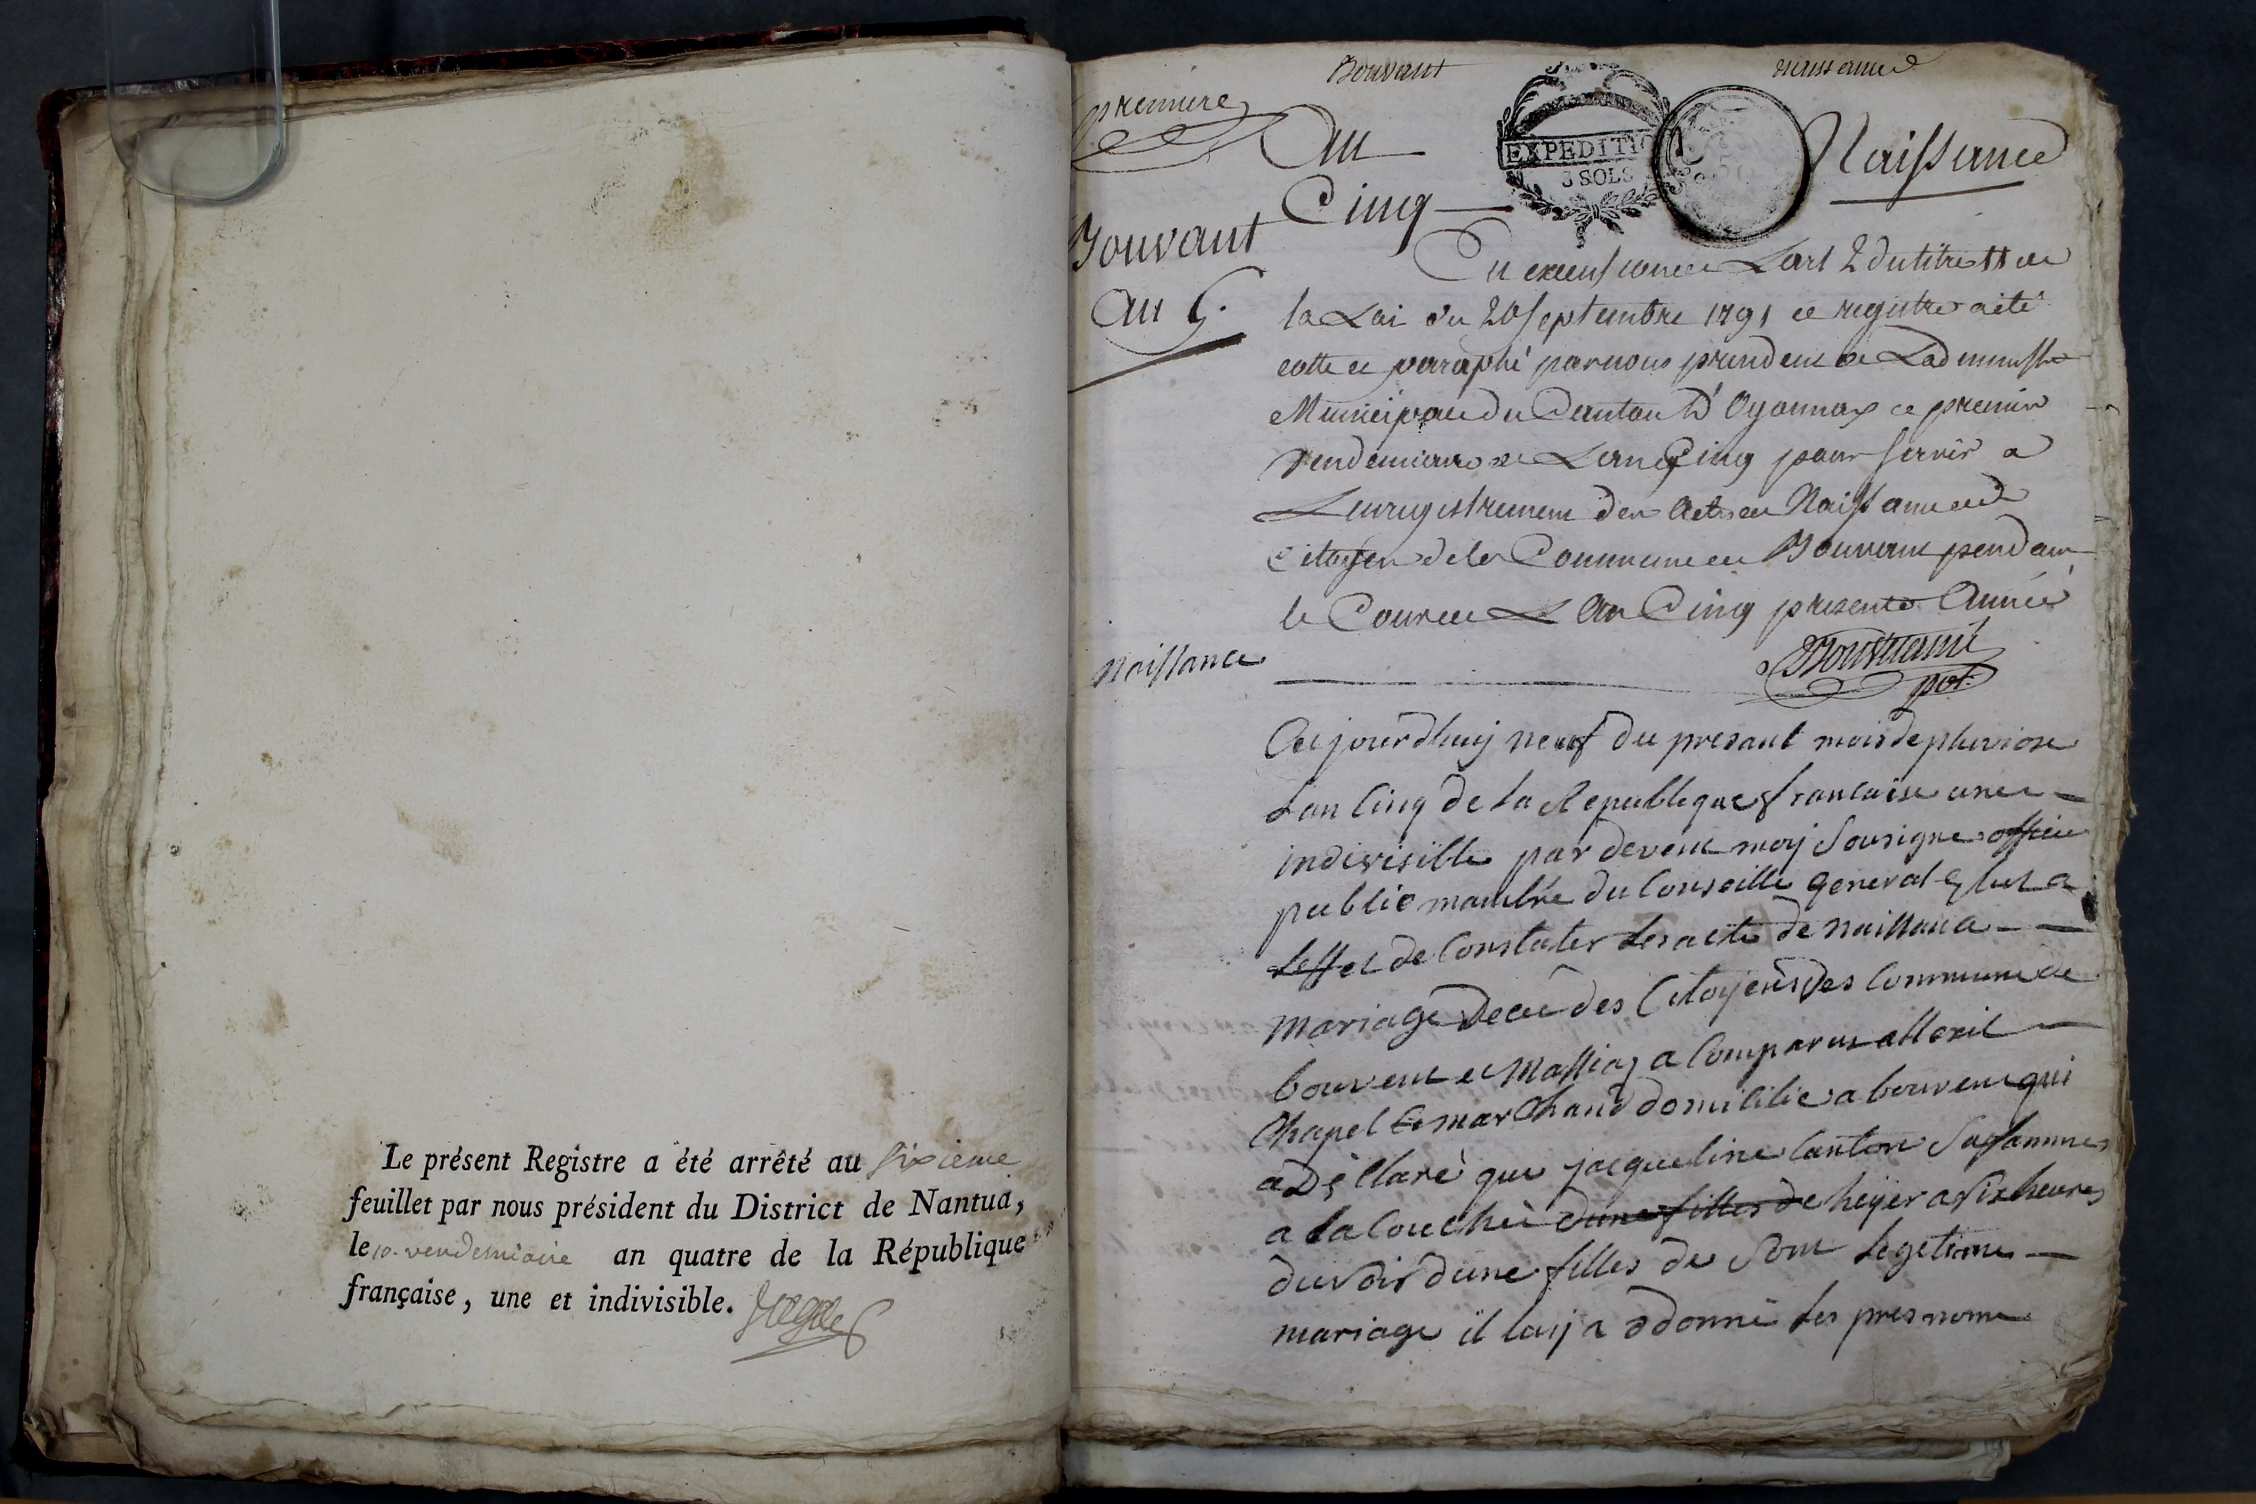 Le présent Registre a été arrêté au sixieme
feuillet par nous président du District de Nantua,
le 10. vendemiaire an quatre de la République
française, une et indivisible.
Bouvant naissance
premiere
An
Cinq
EXPEDITIO
3 SOLS
Naissance
Bouvant
An 5.
En execution de Lart 2 du titre 11 de
la Loi du 20 septembre 1791 ce registre a eté
cotte et paraphé par nous president de Ladministr
Municipale du Canton D'Oyonnax ce premier
vendemiaire de Lan Cinq pour servir a
Lenregistrement des Actes de Naissance des
Citoyen de la Commune de Bouvent pendant
le Cours de L An Cinq presente Année
pdt.
Naissance
Aujourdhuij neuf du presant mois de pluviose
Lan Cinq de la Republique francaise une
indivisible par devent moij Sousigne officie
public manbre du Conseille general eslut a
Leffet de Constater les acte de naissance
mariage Decé des Citoijens des Commune de
bouvent et Massiaz a Comparus allexil
Chapel marchand domicilie a bouvent qui
a Déllaré que jacqueline Canton Sa famme
a la Couchée dune filles de heijer a six heures
du soir dune filles de Som Legetime
mariage il luij a donné les pres nome